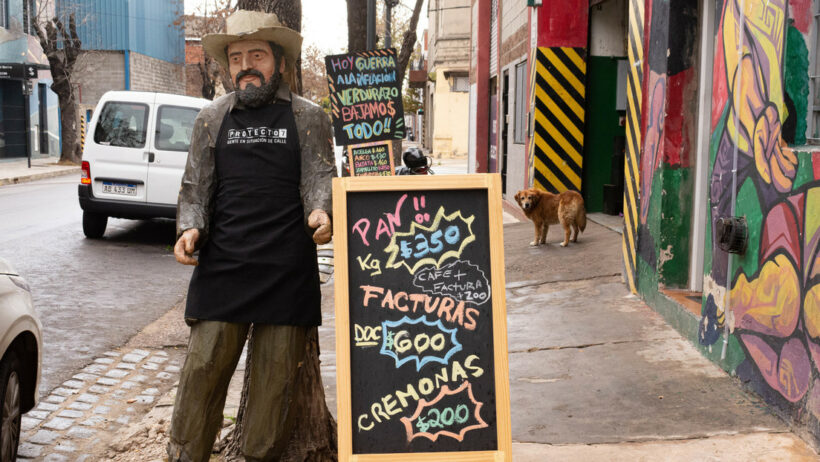 HOY GUERRA
A LA INFLACIÓN
VERDURAZO
BAJAMOS
TODO!
PROYECTO 7
GENTE EN SITUACIÓN DE CALLE
PAN!!
Kg $350
CAFE +
FACTURA
$200
FACTURAS
DOC $600
CREMONAS
$200